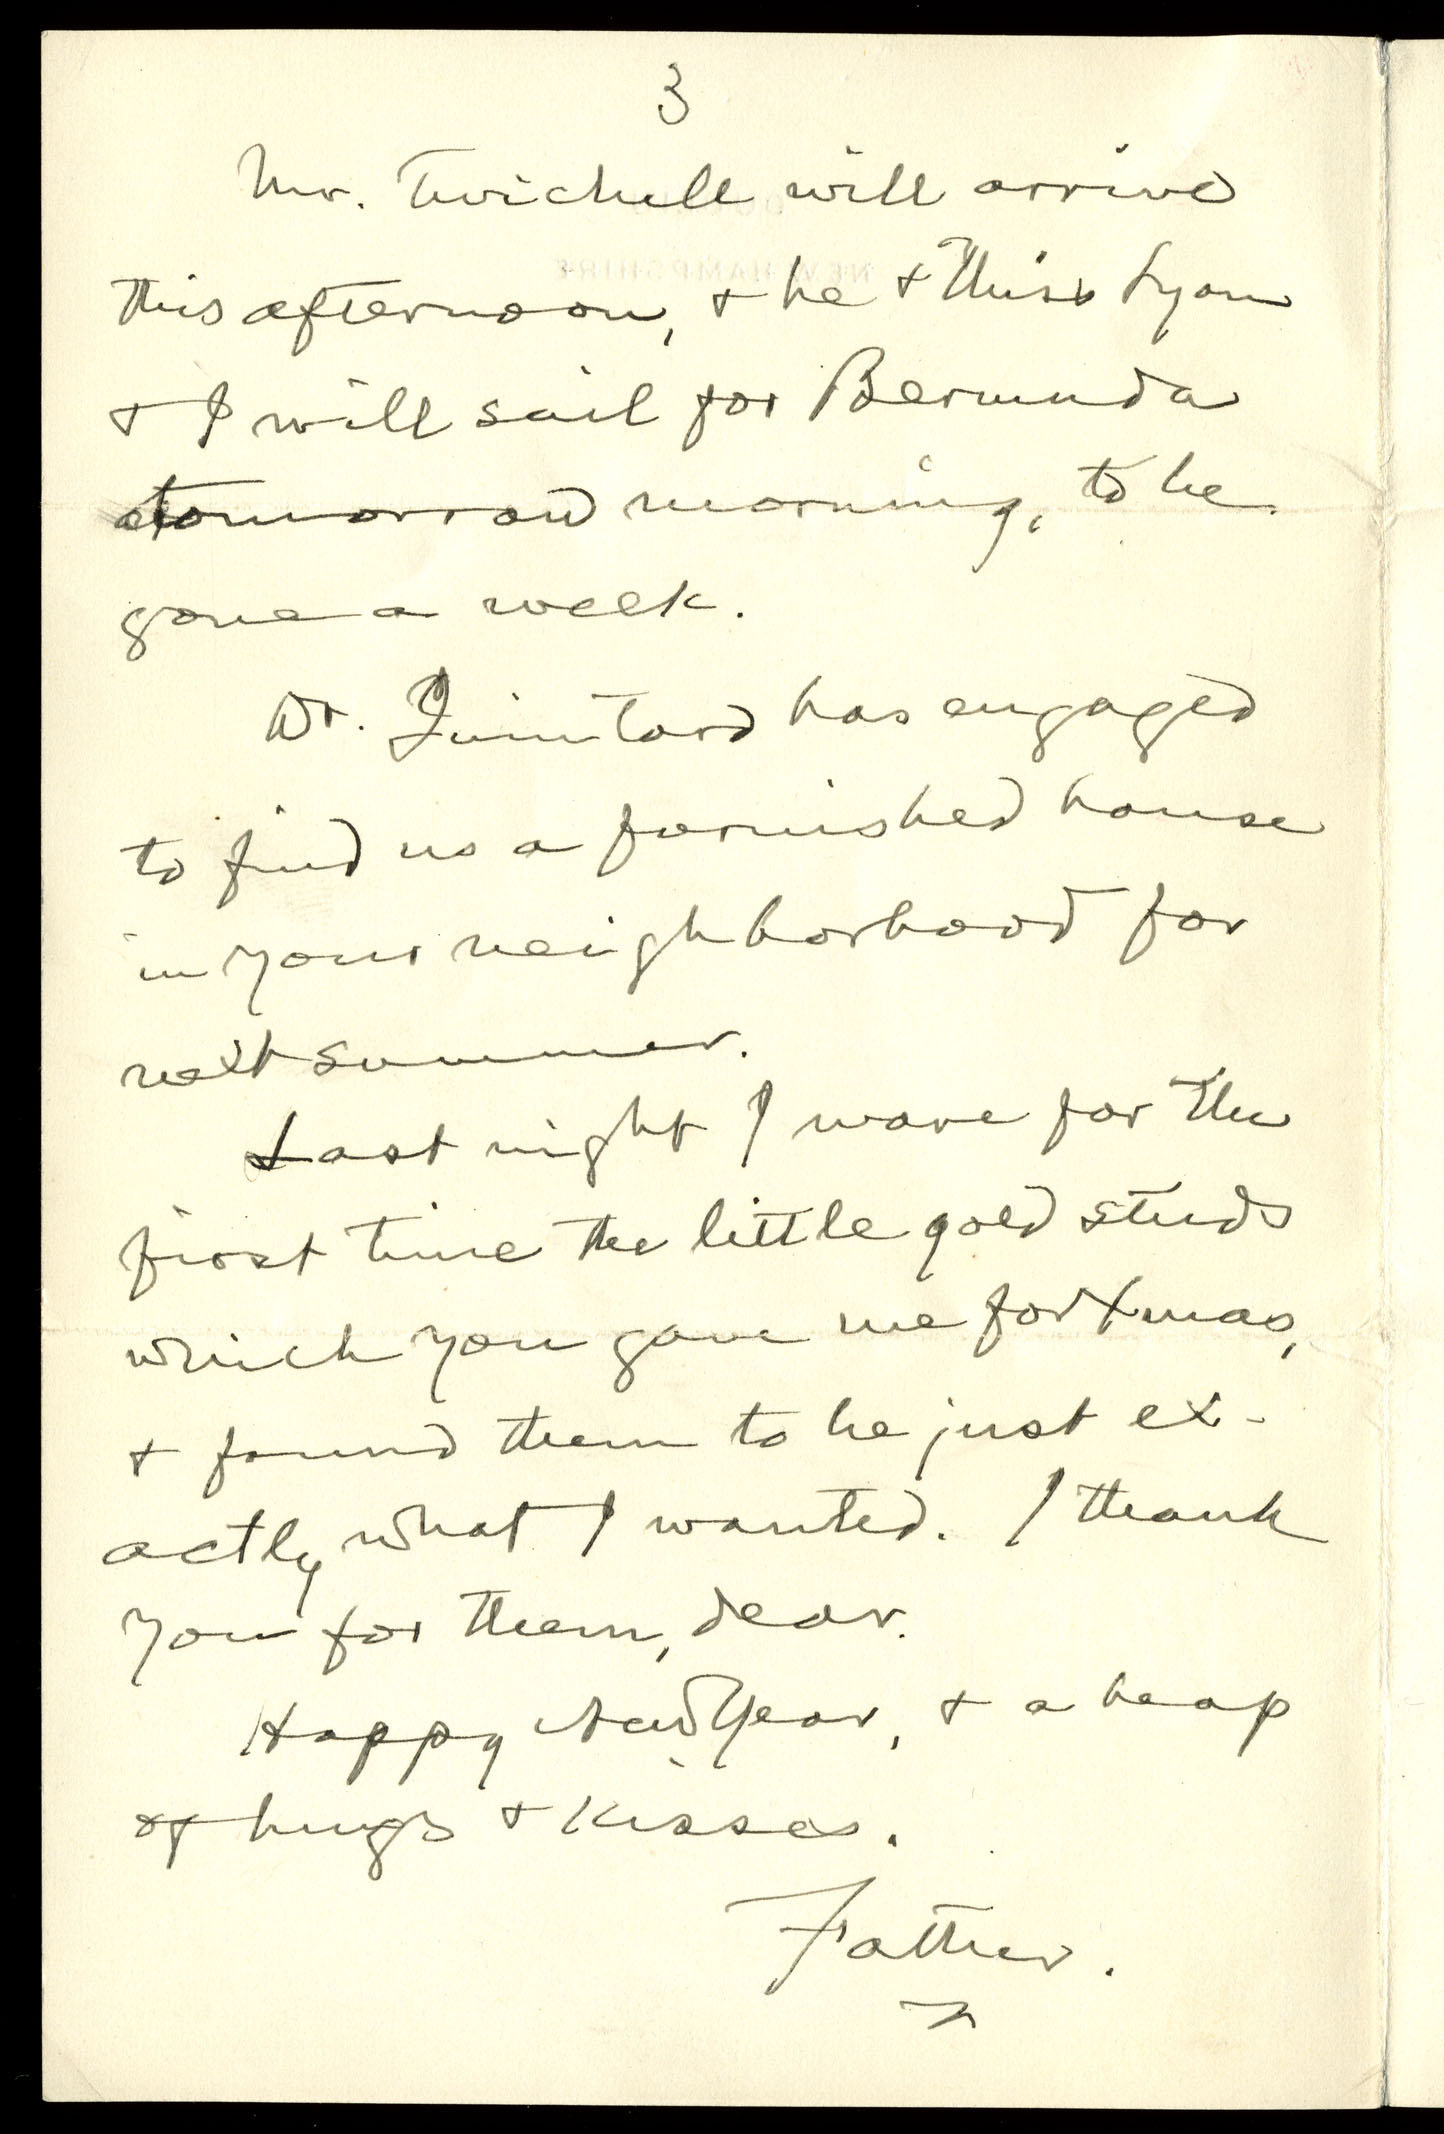 3
Mr. Twichell will arrive
this afternoon, & he & Miss Lyon
& I will sail for Bermuda
tomorrow morning, to be
gone a week.
Dr. Quintard has engaged
to find us a furnished house
in your neighborhood for
next summer.
Last night I wore for the
first time the little gold studs
which you gave me for Xmas,
& found them to be just ex-
actly what I wanted. I thank
you for them, dear.
Happy New Year, & a heap
of hugs & kisses.
Father.